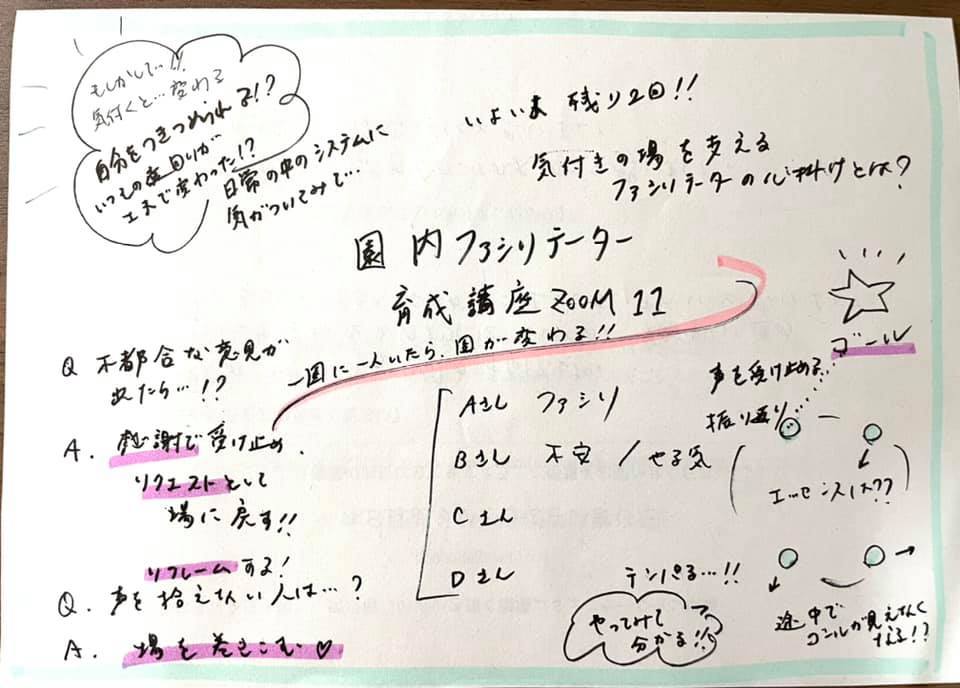 もしかして…!!
気付くと…変わる
自分をつきつめられる!?
いつもの座回りが
エネで変わった!?
日常の中のシステムに
気がついてみて…
いよいよ 残り2回!!
気付きの場を支える
ファシリテーターの心掛けとは?
園内ファシリテーター
育成講座 ZOOM 11
一園に一人いたら、園が変わる!!
Q 不都合な意見が
出たら…!?
A. 感謝で受け止め、
リクエストとして
場に戻す!!
リフレームする!
Q. 声を拾えない人は…?
A. 場を巻きこむ♡
Aさん ファシリ
Bさん 不安/やる気
Cさん
Dさん
テンパる…!!
やってみて
分かる!!
ゴール
声を受け止める…
振り返り…
エッセンスは??
途中で
ゴールが見えなく
なる!?